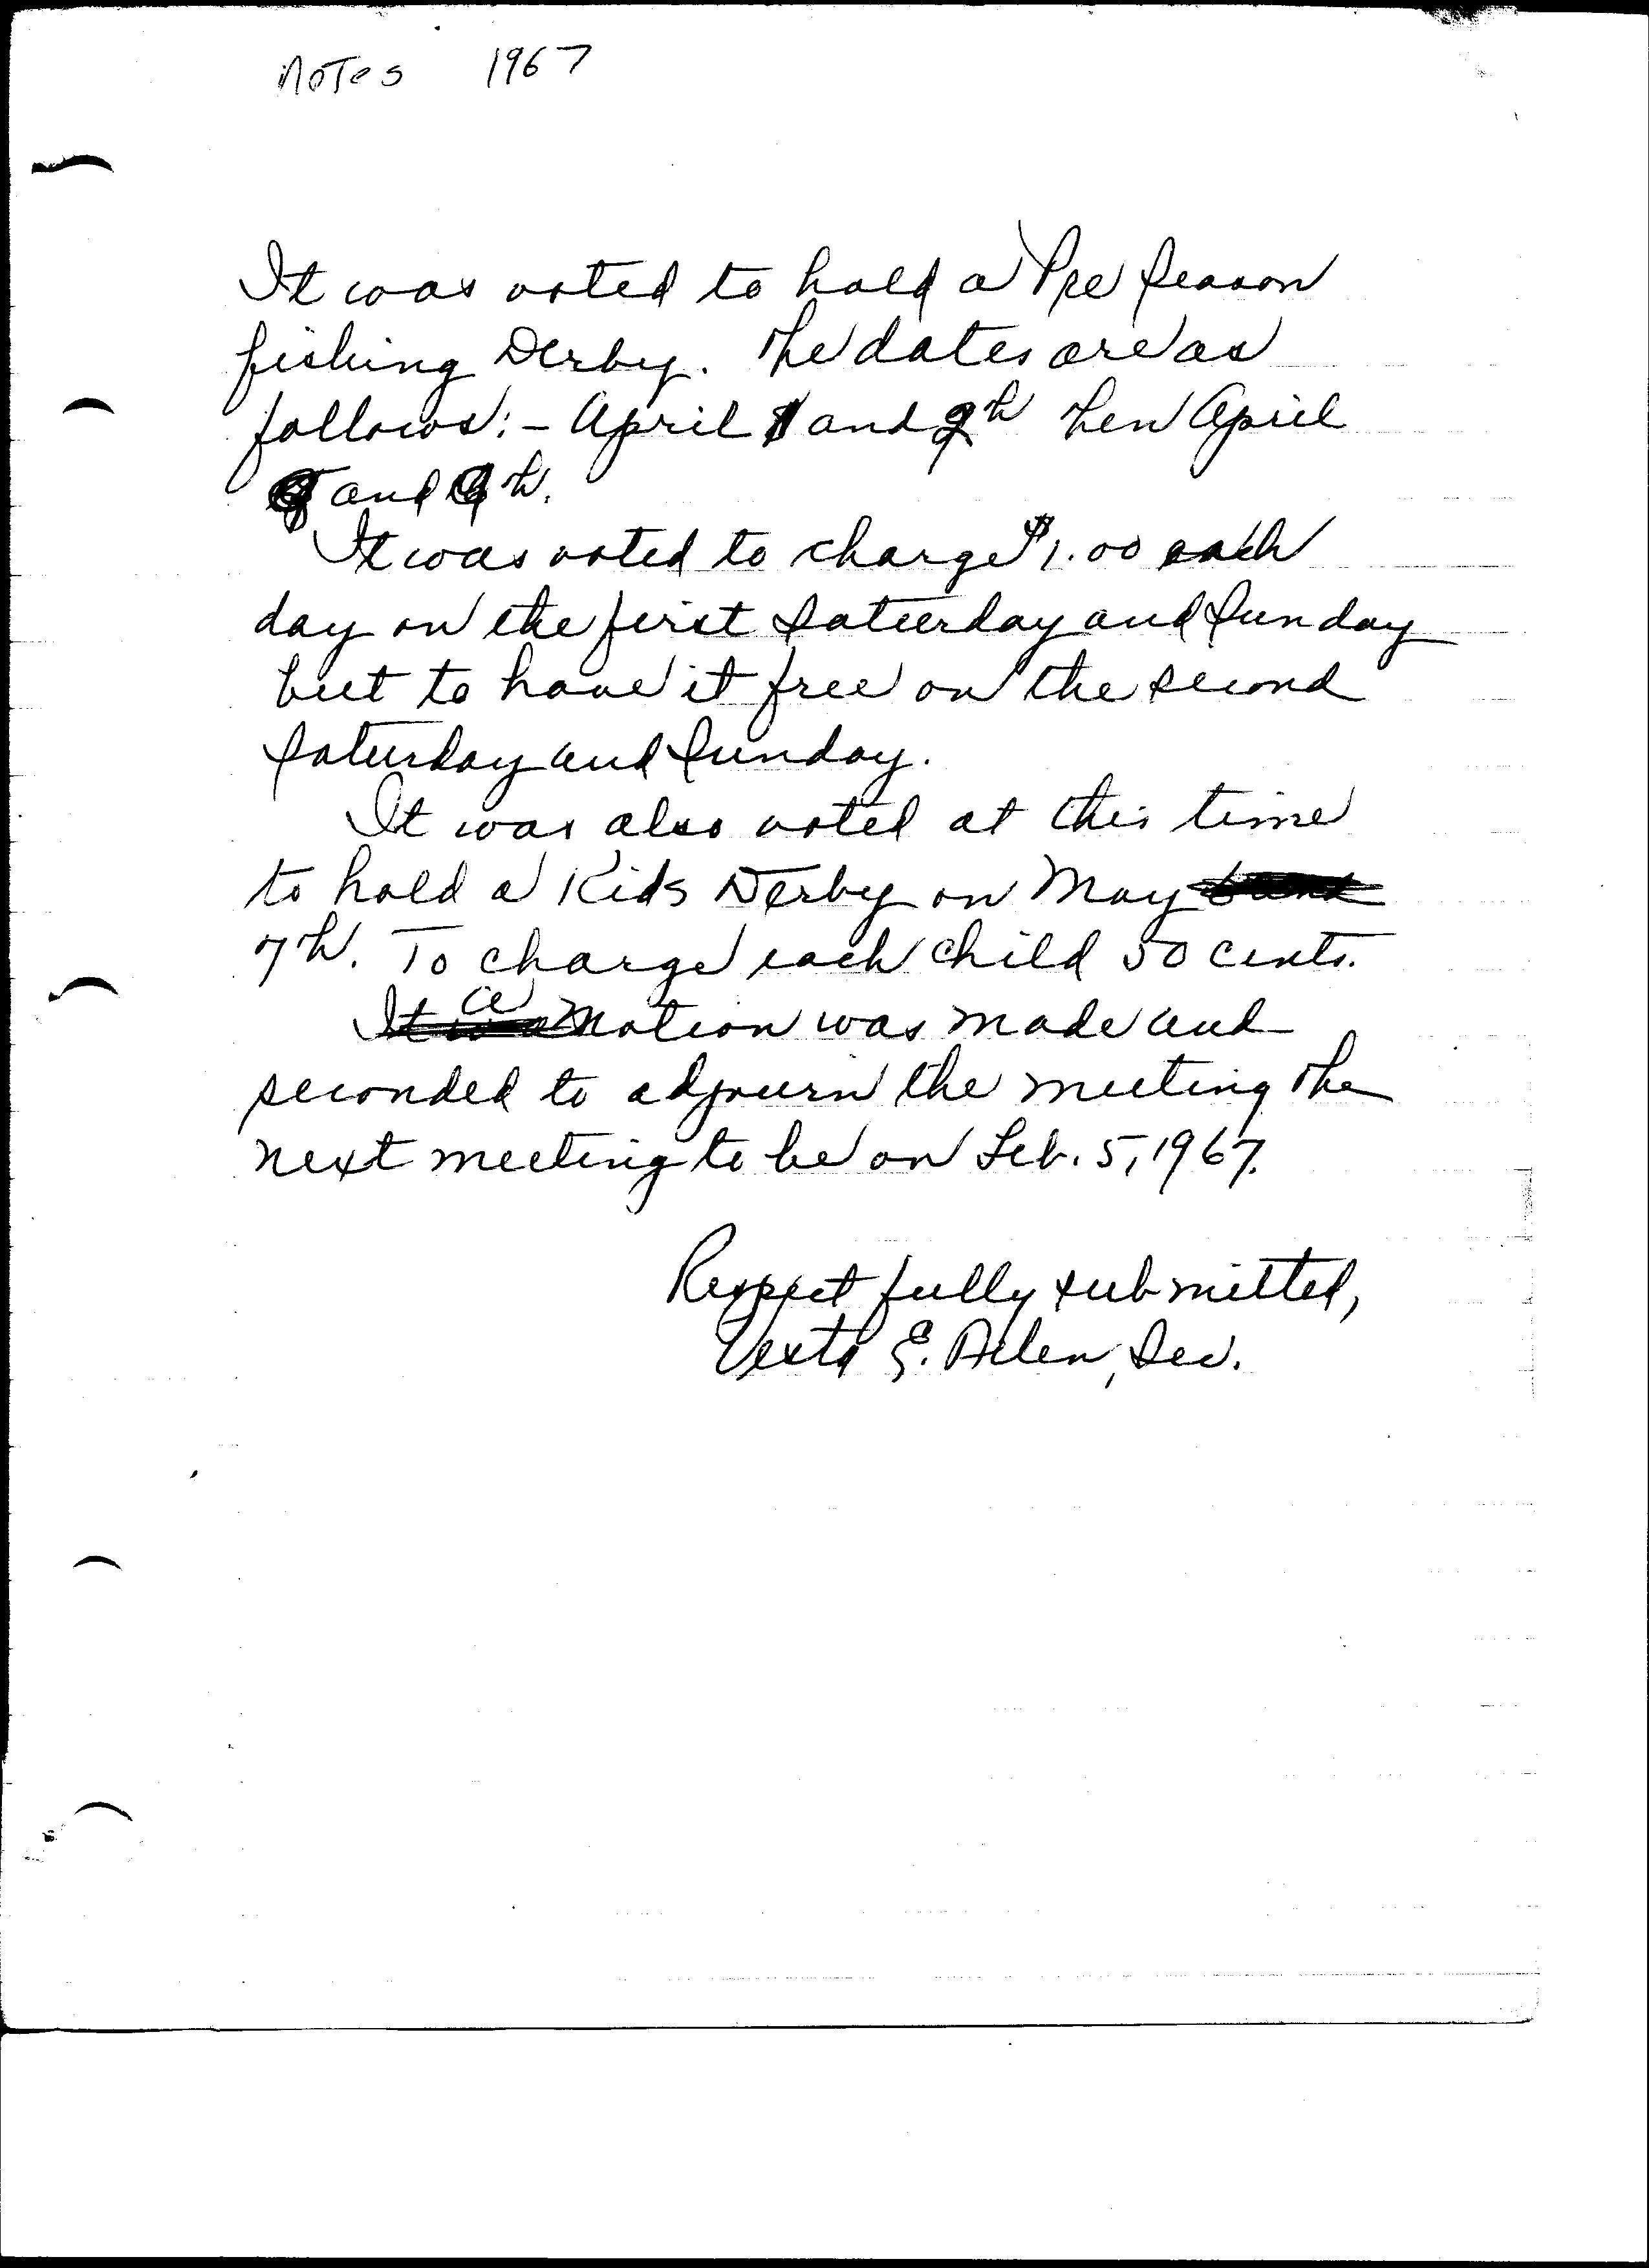 Notes 1967
It was voted to hold a Pre Season
fishing Derby. The dates are as
follows:- April 1 and 2th then April
8 and 9th.
It was voted to charge $1.00 each
day on the first Saturday and Sunday
but to have it free on the second
Saturday and Sunday.
It was also voted at this time
to hold a Kids Derby on May
7th. To charge each child 50 cents.
a Motion was made and
seconded to adjourn the meeting the
next meeting to be on Feb. 5, 1967.
Respectfully submitted,
E. Allen, Sec.